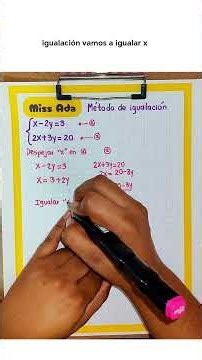 igualación vamos a igualar x
Miss Ada Método de igualación
x-2y=3 ①
2x+3y=20 ②
Despejar "x" en ①
x-2y=3 2x+3y=20
x=3+2y 2x=20-3y
Igualar "